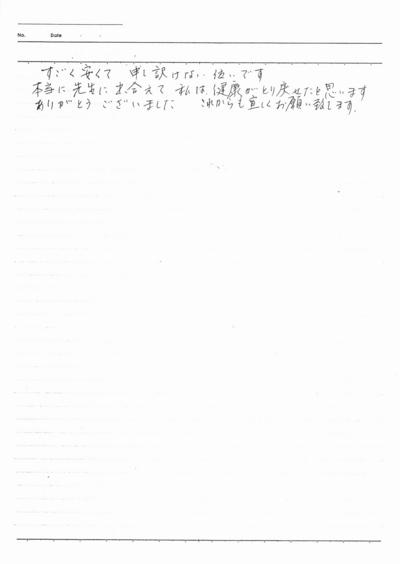 No.　Date　・　・
すごく安くて　申し訳けない位いです
本当に先生に出合えて 私は、健康がとり戻せたと思います
ありがとう ございました　これからも宜しくお願い致します。